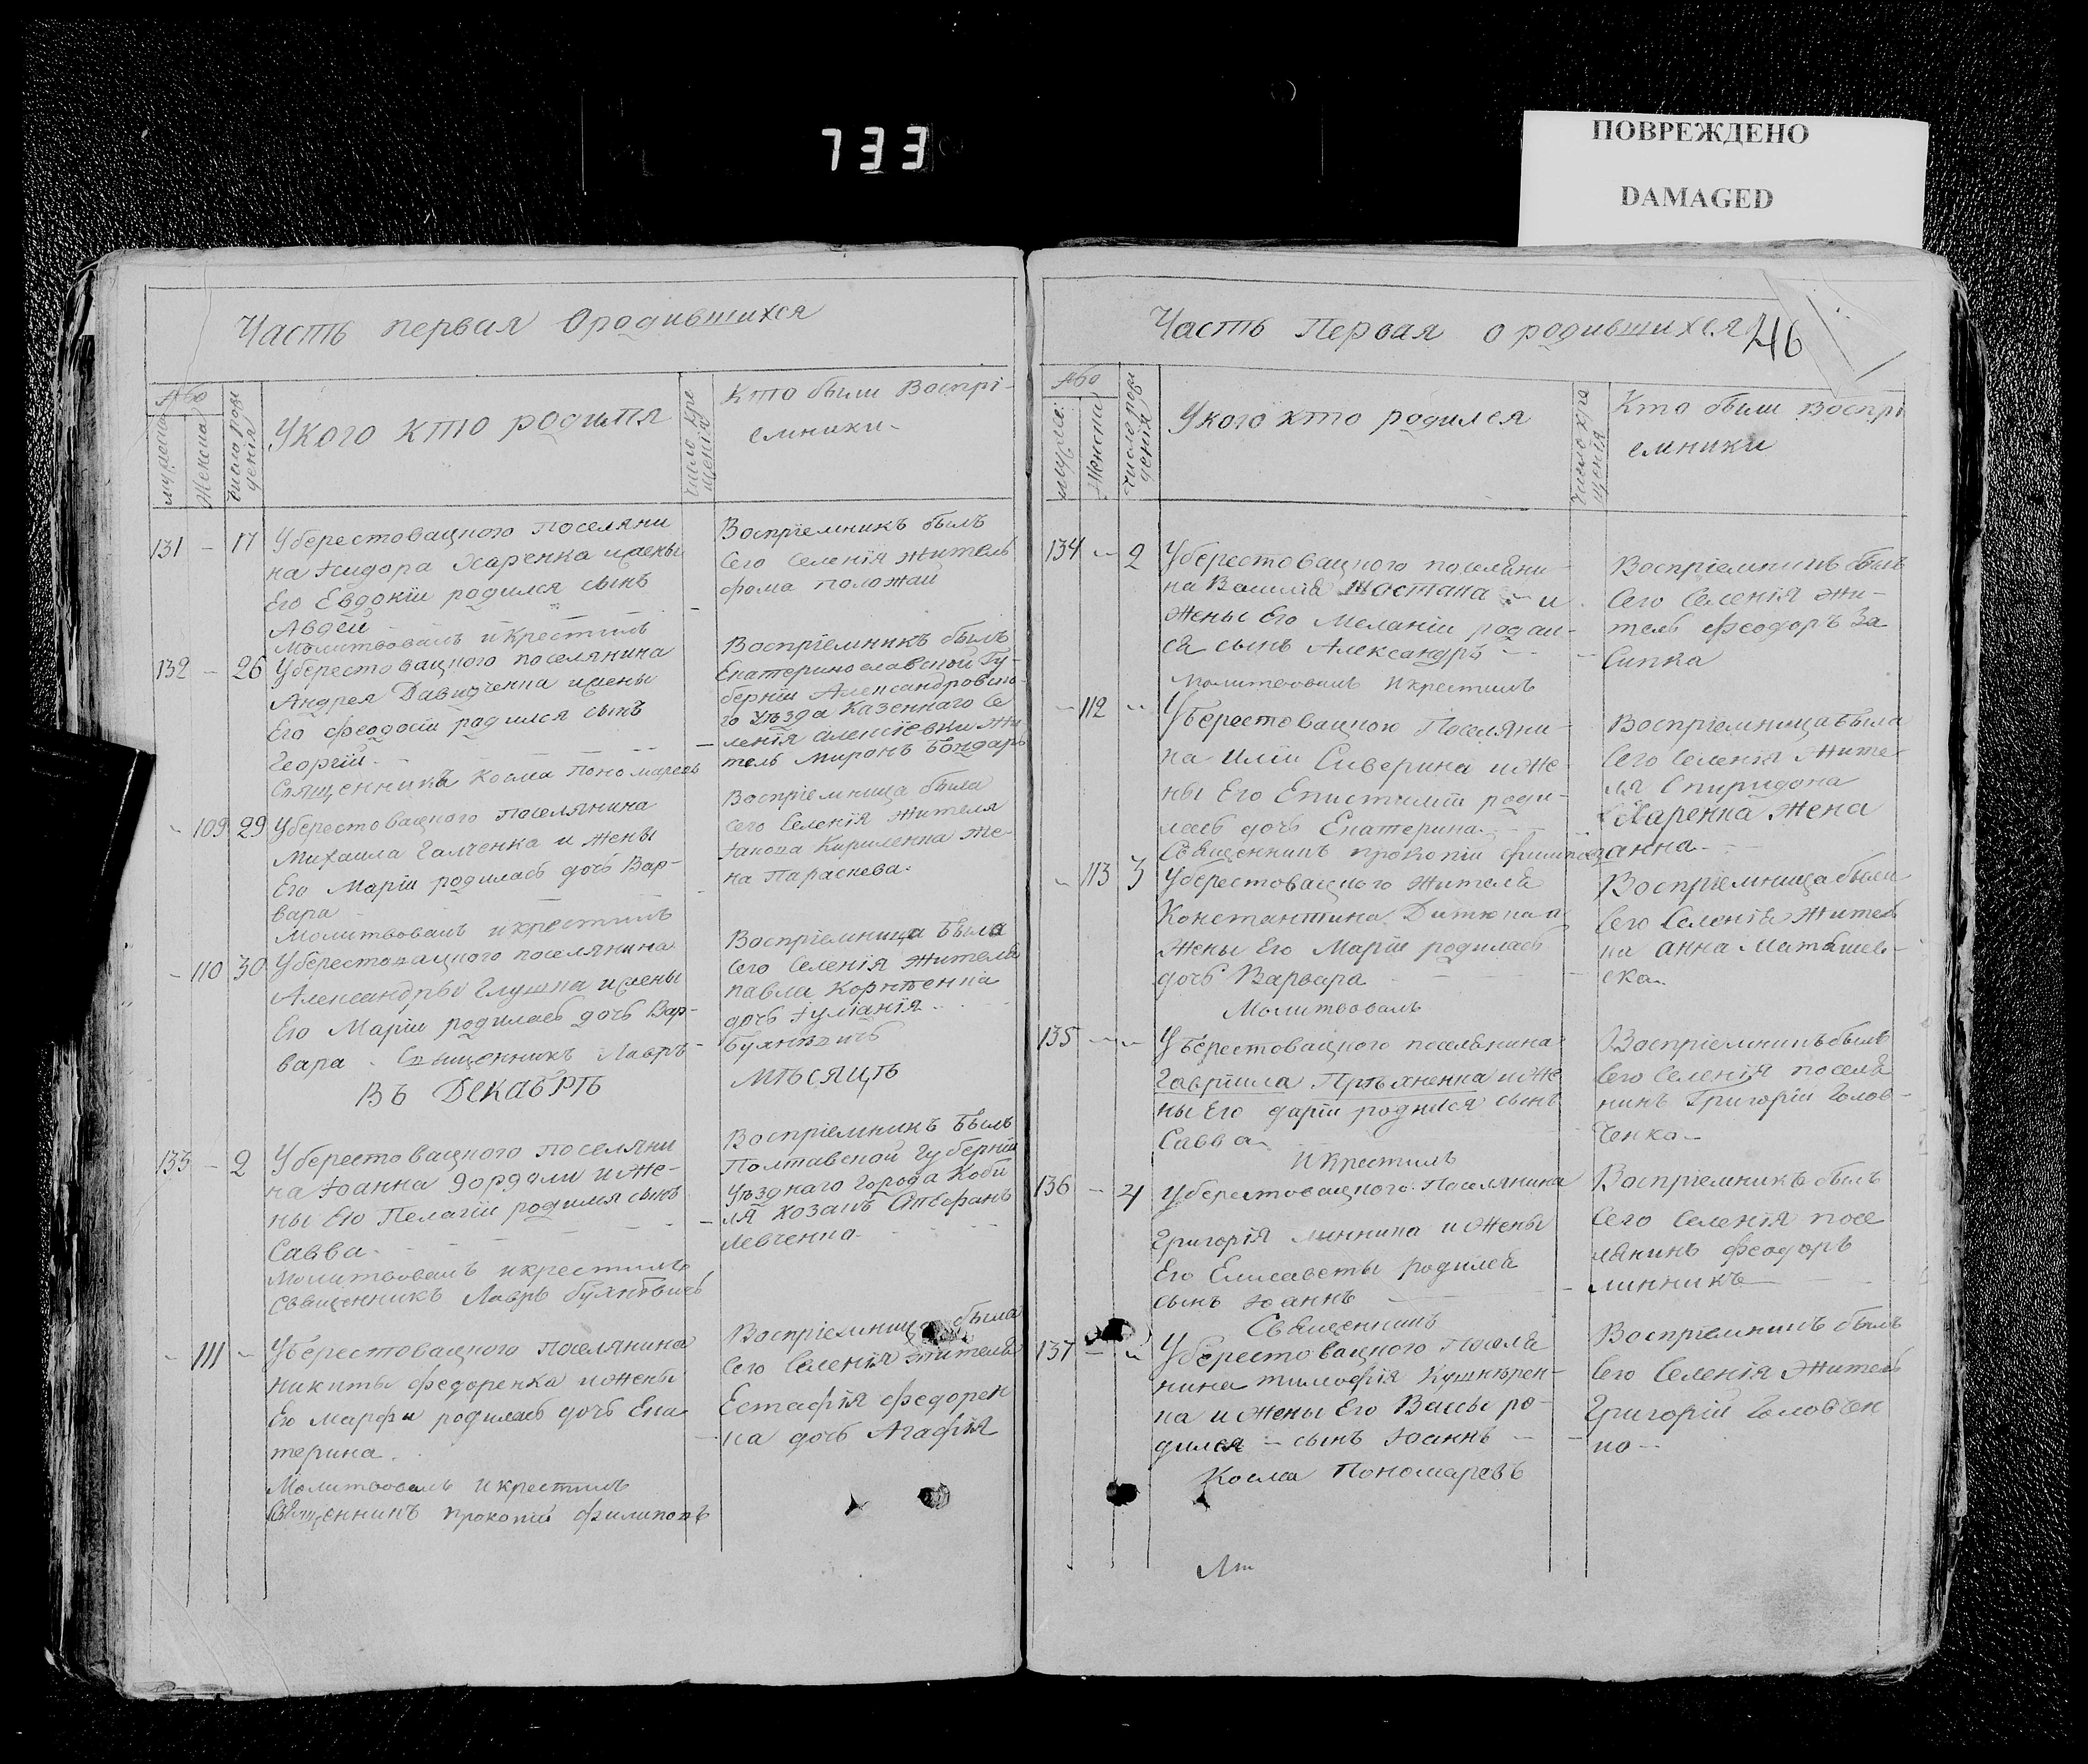 733
ПОВРЕЖДЕНО
DAMAGED
Часть первая О родившихся
мужеска
Женска
число рож
денія
У кого кто родился
число кре
щенія
Кто были Воспрі-
емники-
131 - 17 У берестовацкого поселяни
на Исидора Харенка и жены
Его Евдокіи родился сынъ
Авдей
Молитвовалъ и крестилъ
Воспріемникъ былъ
Сего Селенія житель
фома положай
132 - 26 У берестовацкого поселянина
Андрея Давидченка и жены
Его Феодосіи родился сынъ
Георгій-
Священникъ Косма Пономаревъ
Воспріемникъ былъ
Екатеринославской Гу-
берніи Александровско-
го уѣзда Казеннаго Се
ленія Алексіевки жи
тель Миронъ Бондарь
- 109 29 У берестовацкого поселянина
Михаила Галченка и жены
Его Маріи родилась дочь Вар-
вара
Молитвовалъ и крестилъ
Воспріемница была
сего Селенія жителя
Іакова Кириленка же-
на Параскева.
- 110 30 У берестовацкого поселянина
Александры Глушка и жены
Его Маріи родилась дочь Вар-
вара - Священникъ Лавръ-
Воспріемница была
Сего Селенія жителя
павла Корнѣенка
дочь Іуліанія
Буянѣвичъ
Въ Декабрѣ
мѣсяцѣ
133 - 2 У берестовацкого поселяни
на Іоанна Гордѣли и же-
ны Его Пелагіи родился сынъ
Савва-
Молитвовалъ и крестилъ
священникъ Лавръ Буянѣвичъ
Воспріемникъ былъ
Полтавской Губерніи
Уѣзднаго Города Коби
ля козакъ Стефанъ
Левченко
- 111 - У берестовацкого Поселянина
никиты Федоренка и жены
Его Марфы родилась дочь Ека
терина.
Молитвовалъ и крестилъ
Священникъ прокопій филиповъ
Воспріемница была
Сего Селенія жителя
Естафія Федорен
ка дочь Агафія
Часть Первая о родившихся
246
мужес:
Женска
число рож
денія
У кого кто родился
число кре
щенія
Кто были Воспрі
емники
134 - 2 У берестовацкого поселяни-
на Василія Шостака - и
жены Его Меланіи родил-
ся сынъ Александръ
Молитвовалъ и крестилъ
Воспріемникъ былъ
Сего Селенія жи-
тель Феодоръ За
сипка
- 112 - У берестовацкого Поселяни-
на Иліи Сиверина и же-
ны Его Епистиміи роди-
лась дочь Екатерина.
Священникъ прокопій филиповъ
Воспріемница была
Сего Селенія жите-
ля Спиридона
Харенка жена
анна-
- 113 3 У берестовацкого жителя
Константина Дитюка и
жены Его Маріи родилась
дочь Варвара
Молитвовалъ
Воспріемница была
Сего Селенія житель
ка анна Матвіев-
ска.
135 - - У берестовацкого поселянина
Гавріила Прѣхненка и же
ны Его даріи родился сынъ
Савва-
и крестилъ
Воспріемникъ былъ
Сего Селенія поселя
нинъ Григорій Голов-
ченко-
136 - 4 У берестовацкого Поселянина
Григорія Линника и жены
Его Елисаветы родился
сынъ Іоаннъ
Священникъ
Воспріемникъ былъ
сего селенія посе
лянинъ Феодоръ
линникъ
137 - - У берестовацкого Поселя
нина тимофія Кушнѣрен-
ка и жены Его Вассы ро-
дился - сынъ Іоаннъ -
Косма Пономаревъ
Воспріемникъ былъ
Сего Селенія житель
Григорій Головчен
ко-